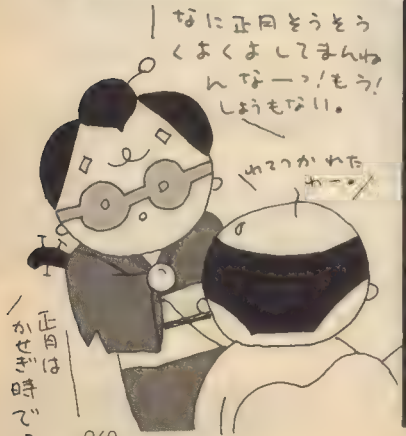 なに正月そうそう
くよくよしてまんね
んなーっ!もう!
しょうもない。
わてつかれた
わー
正月は
かせぎ時で